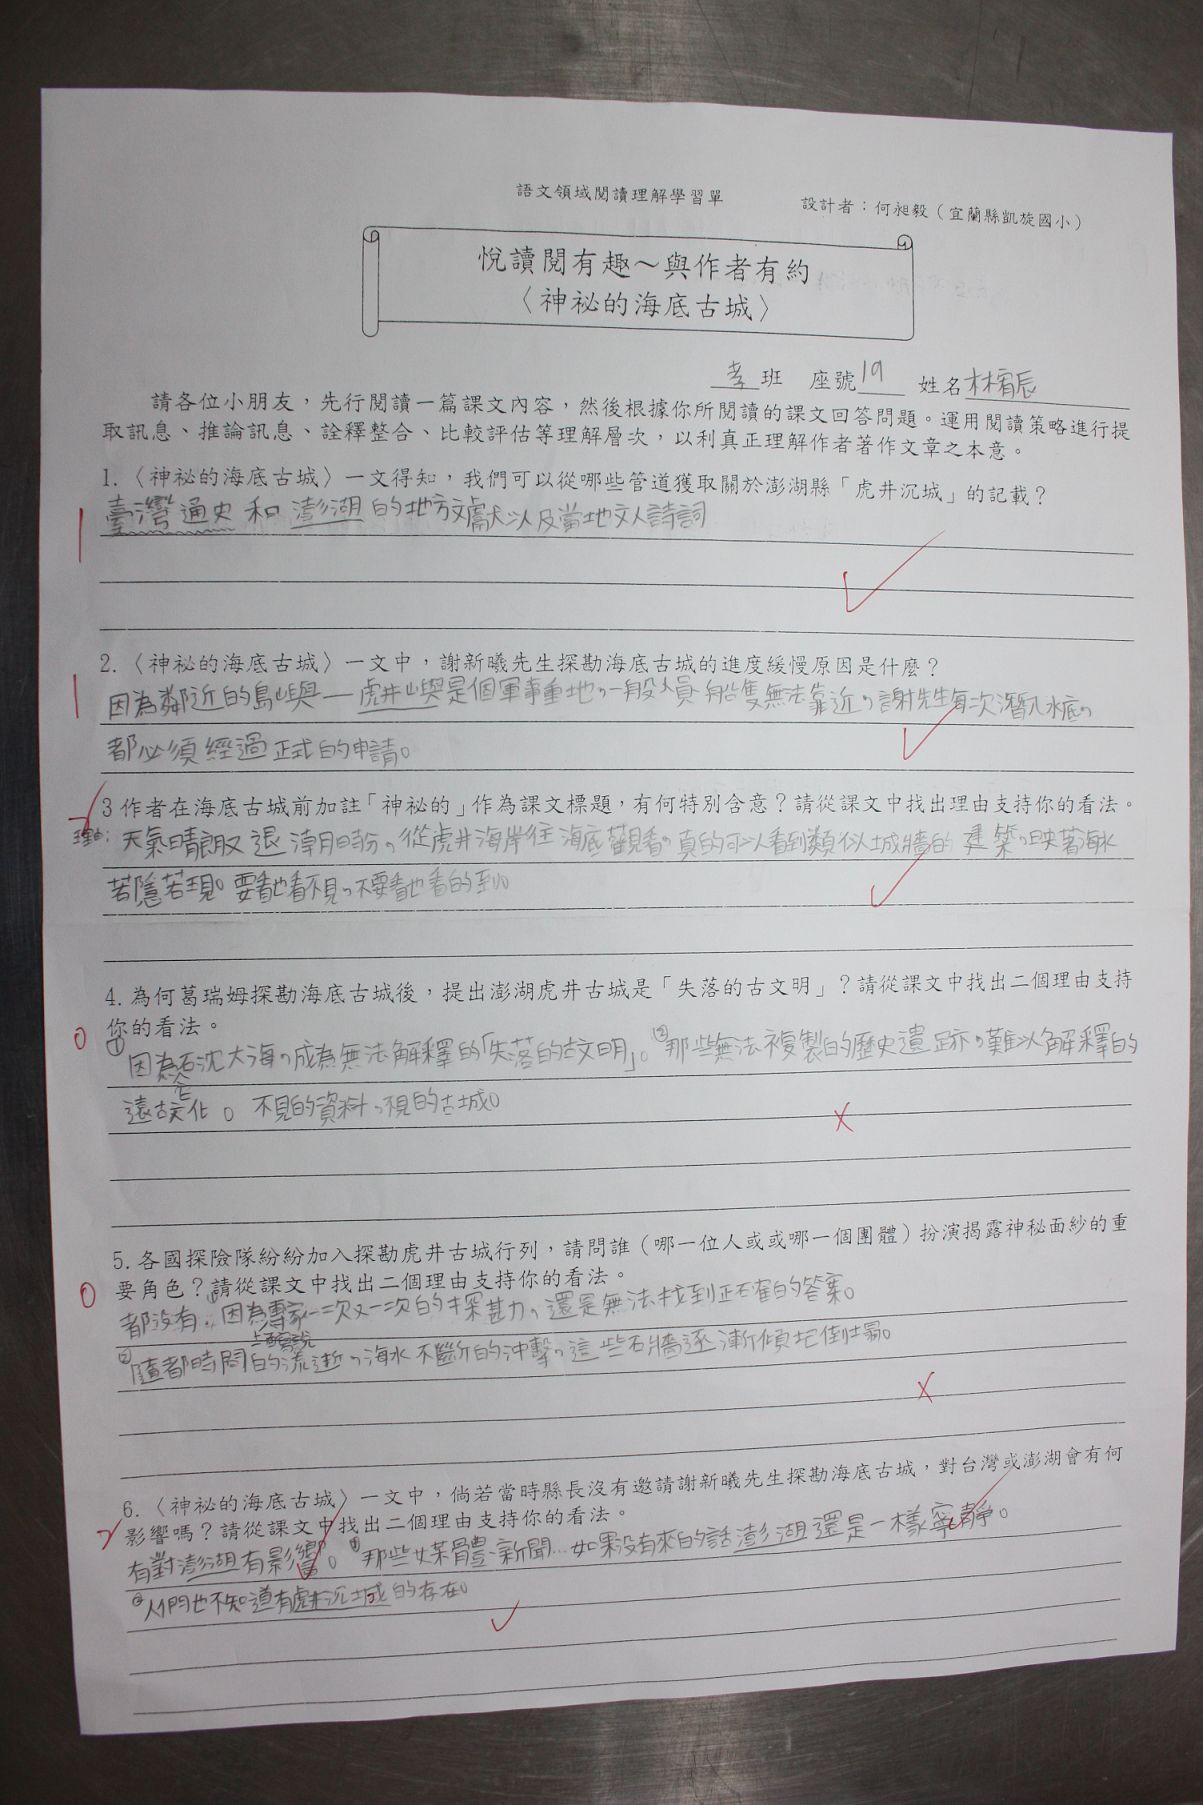 語文領域閱讀理解學習單
設計者：何昶毅（宜蘭縣凱旋國小）
悅讀閱有趣～與作者有約
〈神祕的海底古城〉
孝班 座號19 姓名林宥辰
請各位小朋友，先行閱讀一篇課文內容，然後根據你所閱讀的課文回答問題。運用閱讀策略進行提
取訊息、推論訊息、詮釋整合、比較評估等理解層次，以利真正理解作者著作文章之本意。
1.〈神祕的海底古城〉一文得知，我們可以從哪些管道獲取關於澎湖縣「虎井沉城」的記載？
1 臺灣通史和澎湖的地方文獻以及當地文人詩詞
2.〈神祕的海底古城〉一文中，謝新曦先生探勘海底古城的進度緩慢原因是什麼？
1 因為鄰近的島嶼—虎井嶼是個軍事重地，一般人員船隻無法靠近，謝先生每次潛入水底，
都必須經過正式的申請。
3 作者在海底古城前加註「神祕的」作為課文標題，有何特別含意？請從課文中找出理由支持你的看法。
2 理由：天氣晴朗又退潮時分，從虎井海岸往海底觀看，真的可以看到類似城牆的建築，映著海水
若隱若現。要看也看不見，不要看也看的到。
4.為何葛瑞姆探勘海底古城後，提出澎湖虎井古城是「失落的古文明」？請從課文中找出二個理由支持
0 你的看法。
①因為石沈大海，成為無法解釋的「失落的古文明」。②那些無法複製的歷史遺跡，難以解釋的
遠古文化。不見的資料，不見的古城。
5.各國探險隊紛紛加入探勘虎井古城行列，請問誰（哪一位人或或哪一個團體）扮演揭露神秘面紗的重
0 要角色？請從課文中找出二個理由支持你的看法。
都沒有：①因為專家一次又一次的探勘，還是無法找到正確的答案。
②隨著時間的流逝，海水不斷的沖擊，這些石牆逐漸傾圮倒塌。
6.〈神祕的海底古城〉一文中，倘若當時縣長沒有邀請謝新曦先生探勘海底古城，對台灣或澎湖會有何
2 影響嗎？請從課文中找出二個理由支持你的看法。
有對澎湖有影響。①那些媒體、新聞…如果沒有來的話澎湖還是一樣寧靜。
②人們也不知道有虎井沉城的存在。